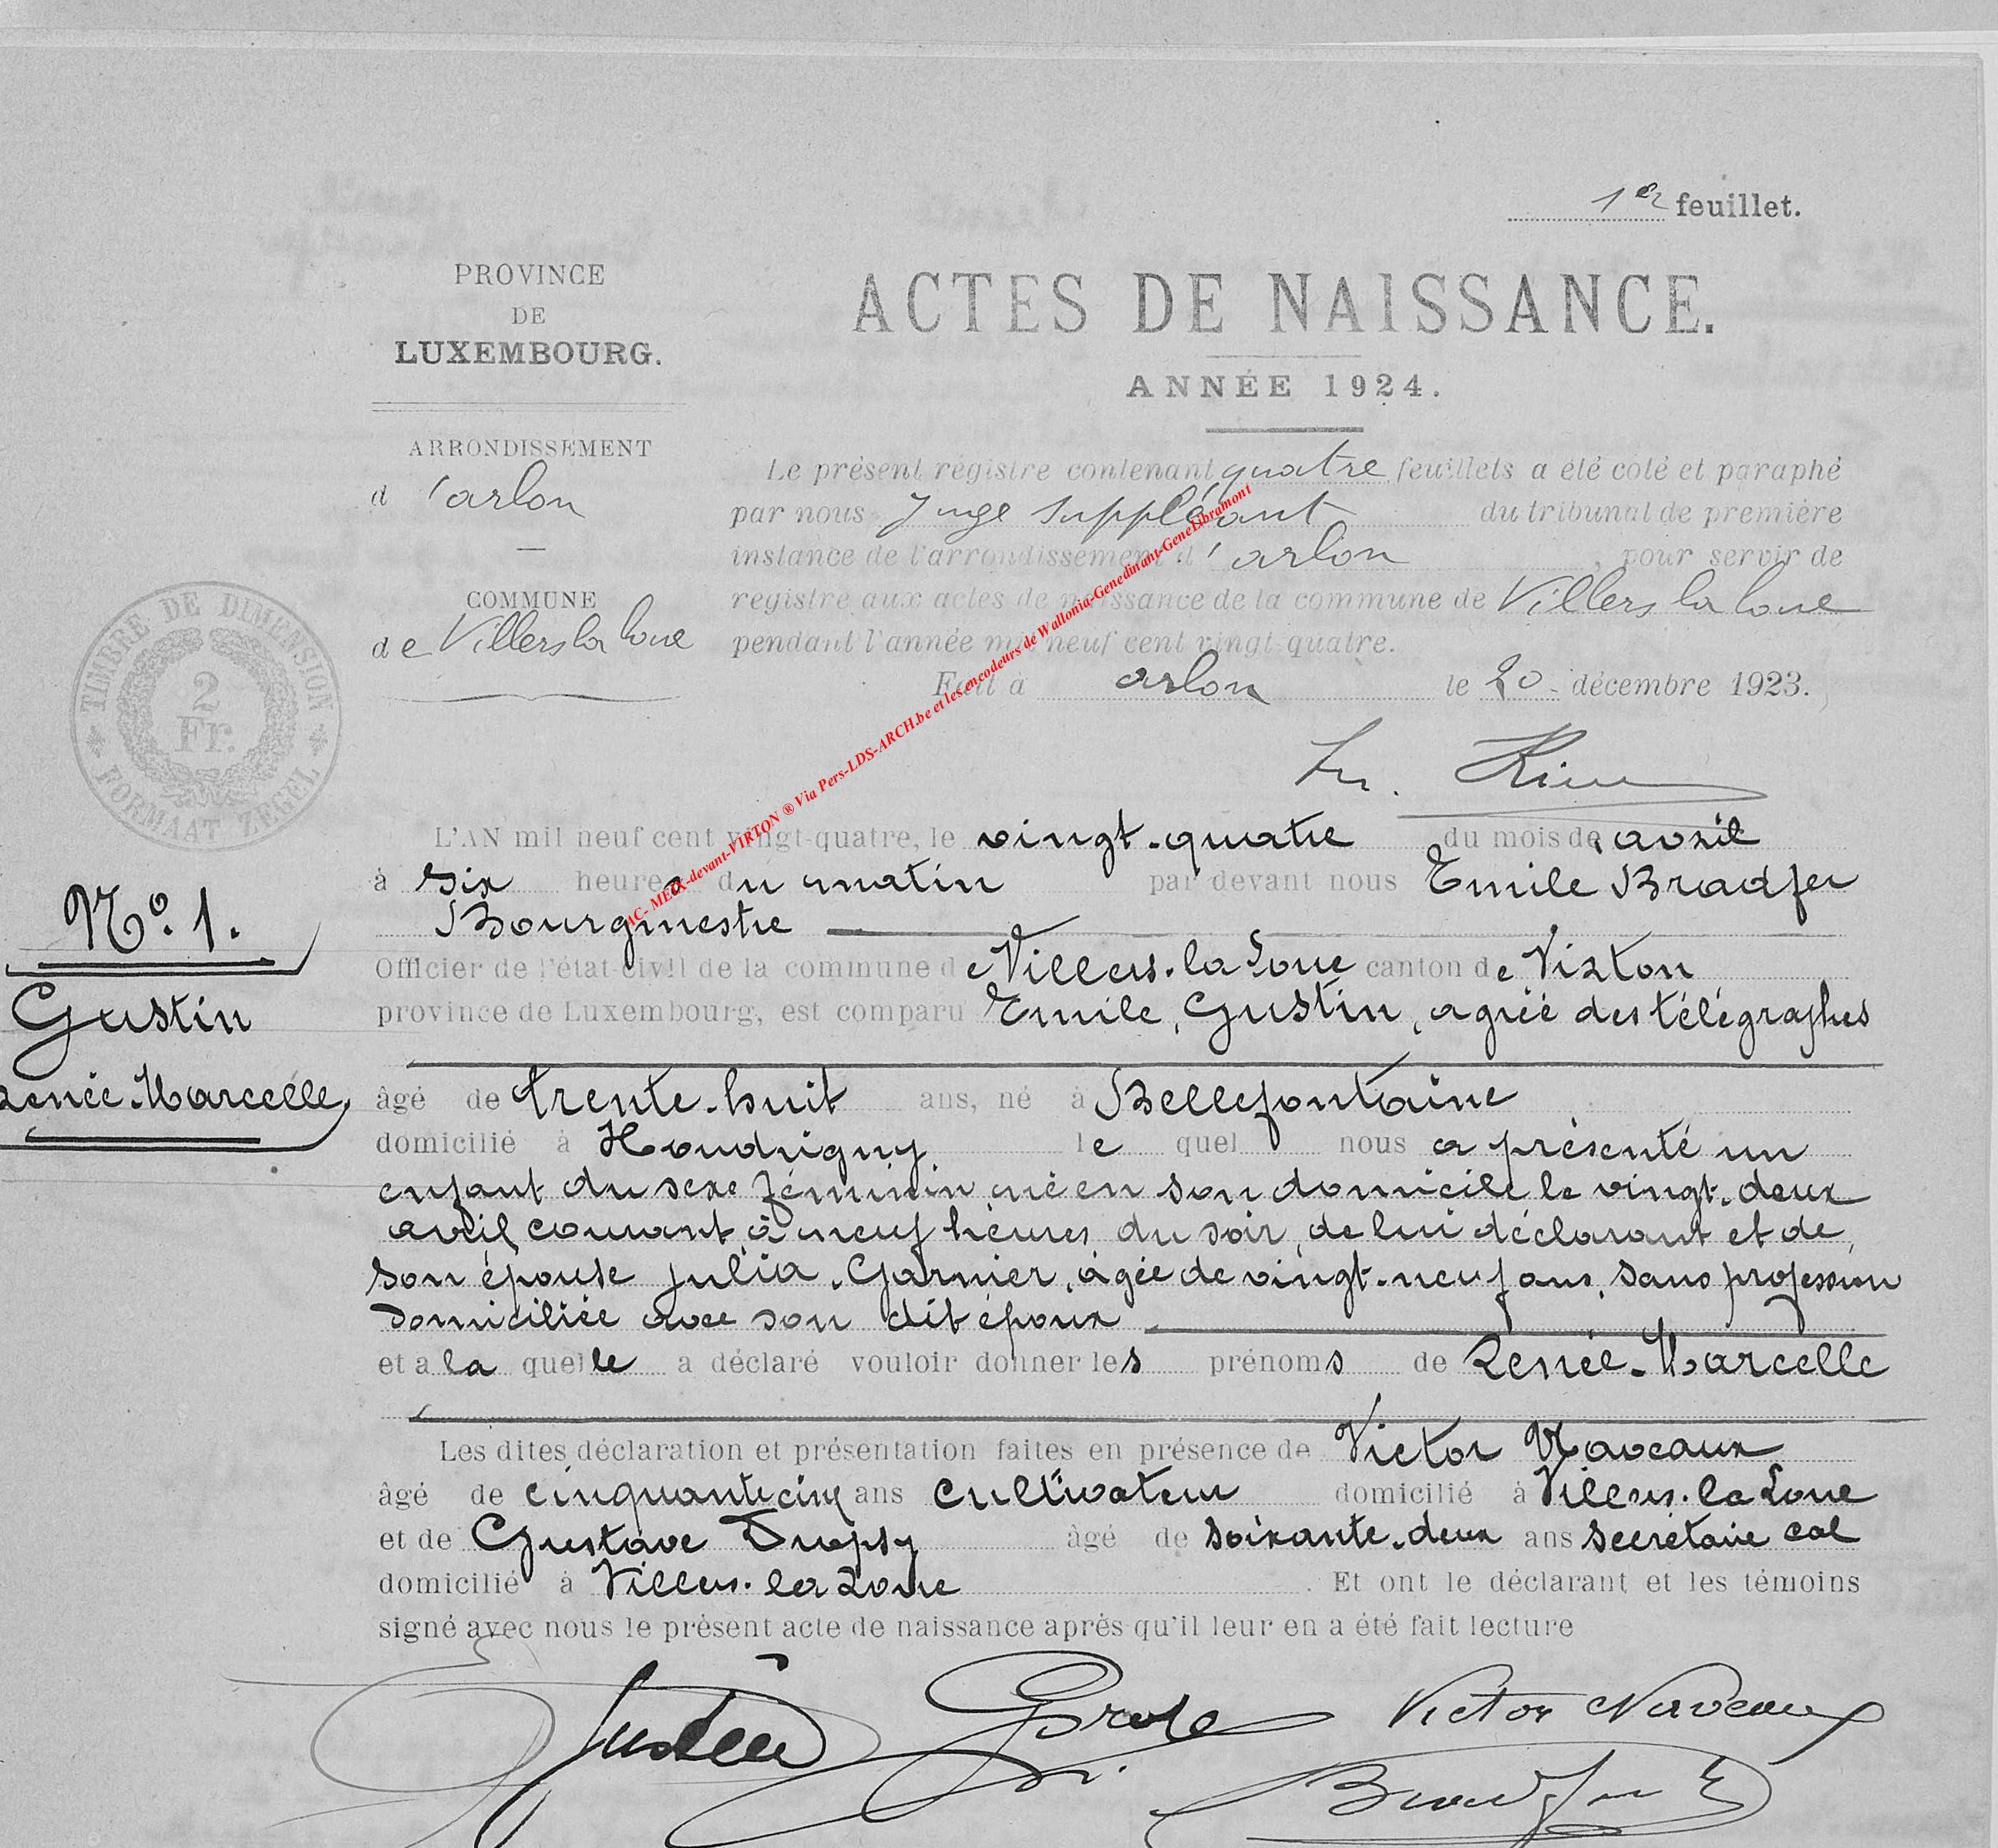 1er feuillet.
PROVINCE
DE
LUXEMBOURG.
ACTES DE NAISSANCE.
ANNÉE 1924.
ARRONDISSEMENT
d'arlon
COMMUNE
de Villers la Loue
TIMBRE DE DIMENSION
2
Fr.
FORMAAT ZEGEL
Le présent régistre contenant quatre feuillets a été coté et paraphé
par nous Juge Suppléant du tribunal de première
instance de l'arrondissement d'arlon, pour servir de
registre aux actes de naissance de la commune de Villers la Loue
pendant l'année mil neuf cent vingt-quatre.
Fait à arlon le 20 décembre 1923.
AC- MEIX-devant-VIRTON ® Via Pers-LDS-ARCH.be et les encodeurs de Wallonia-Genedinant-GeneLibramont
L'AN mil neuf cent vingt-quatre, le vingt-quatre du mois de avril
à six heures du matin par devant nous Emile Bradfer
Bourgmestre
Officier de l'état-civil de la commune de Villers-la-Loue canton de Virton
province de Luxembourg, est comparu Emile, Gustin, agréé des télégraphes
No. 1.
Gustin
Renée-Marcelle,
âgé de trente-huit ans, né à Bellefontaine
domicilié à Houdrigny, le quel nous a présenté un
enfant du sexe féminin né en son domicile le vingt-deux
avril courant, à neuf heures du soir, de lui déclarant et de
son épouse Julia, Garnier, âgée de vingt-neuf ans, sans profession
domiciliée avec son dit époux
et a la quelle a déclaré vouloir donner les prénoms de Renée-Marcelle
Les dites déclaration et présentation faites en présence de Victor Naveaux
âgé de cinquante cinq ans cultivateur domicilié à Villers-la-Loue
et de Gustave Dropsy âgé de soixante-deux ans secrétaire cal
domicilié à Villers-la-Loue. Et ont le déclarant et les témoins
signé avec nous le présent acte de naissance après qu'il leur en a été fait lecture
Gustin
Victor Naveaux
Bradfer